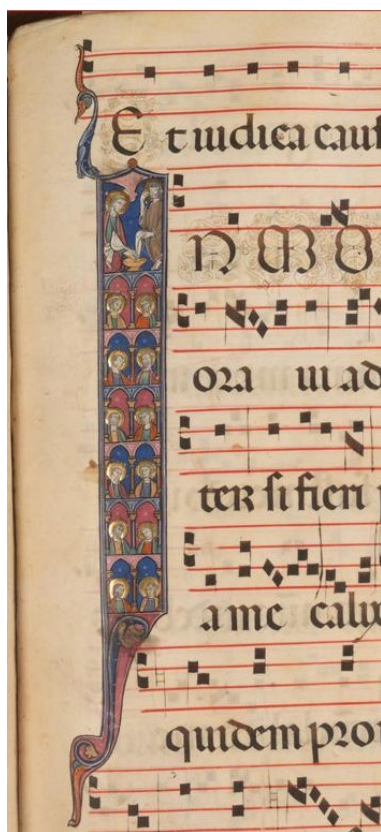 Et iudica caus
IN MO
ora uit ad
ter si fieri
a me calix
quidem pro